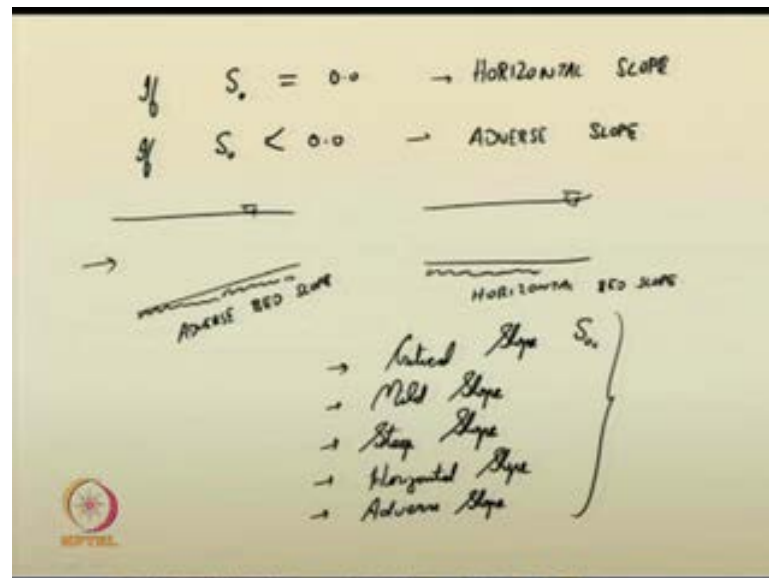 If S₀ = 0.0 → HORIZONTAL SLOPE
If S₀ < 0.0 → ADVERSE SLOPE
→
ADVERSE BED SLOPE
HORIZONTAL BED SLOPE
→ Critical Slope
→ Mild Slope
→ Steep Slope
→ Horizontal Slope
→ Adverse Slope
NPTEL